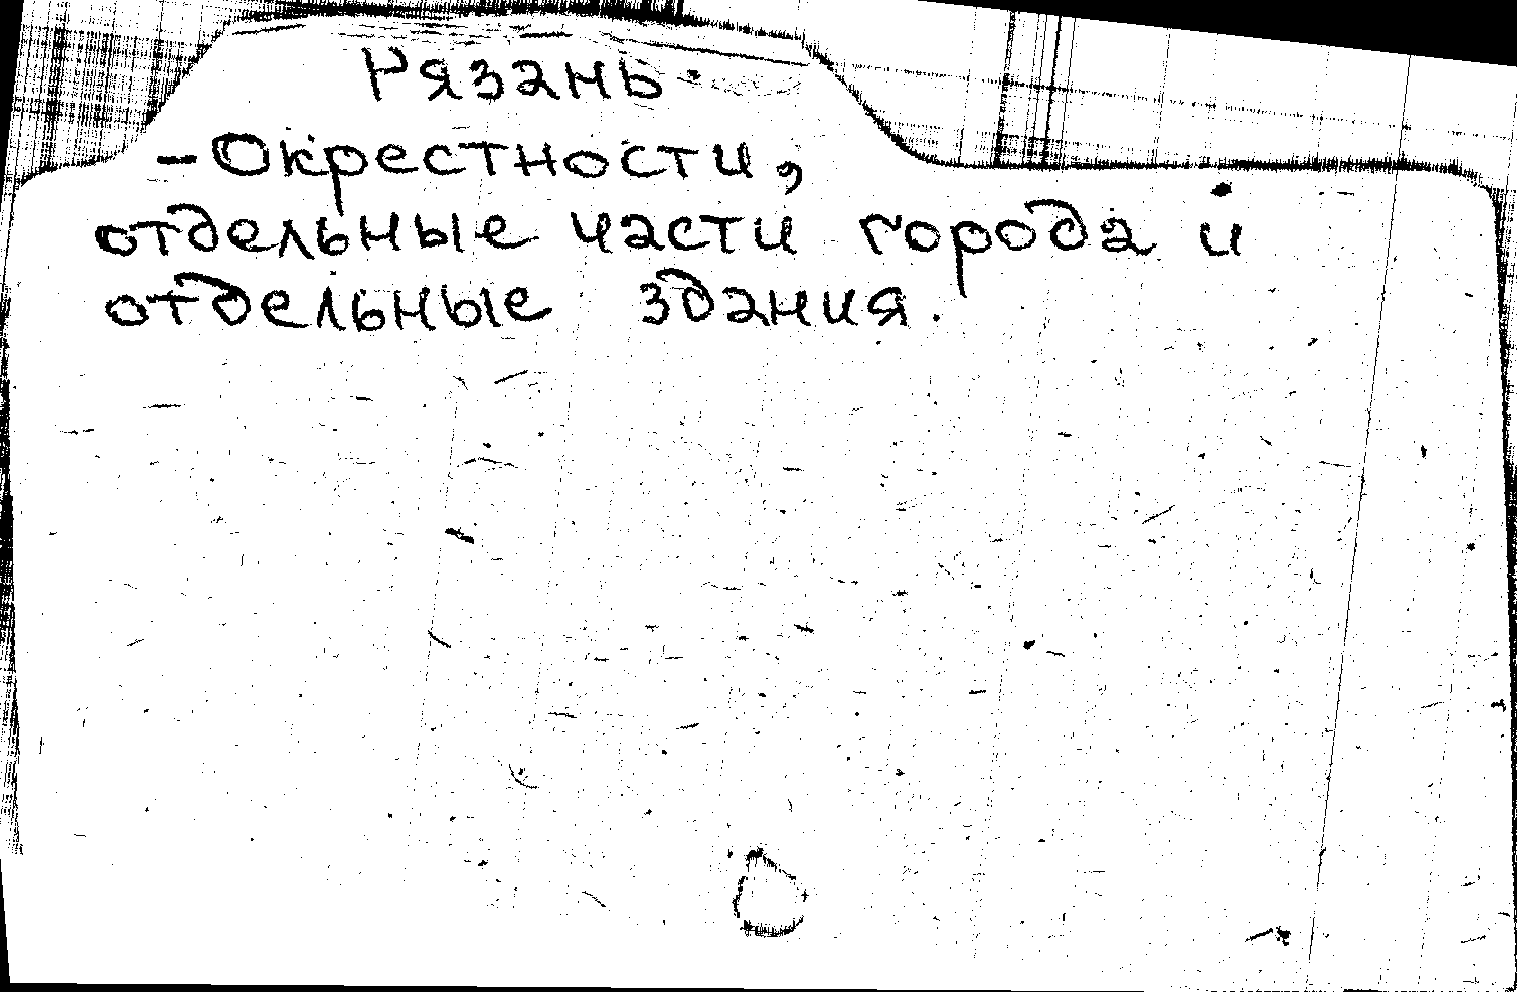 Рязань.
- Окрестности,
отдельные части города и
отдельные здания.